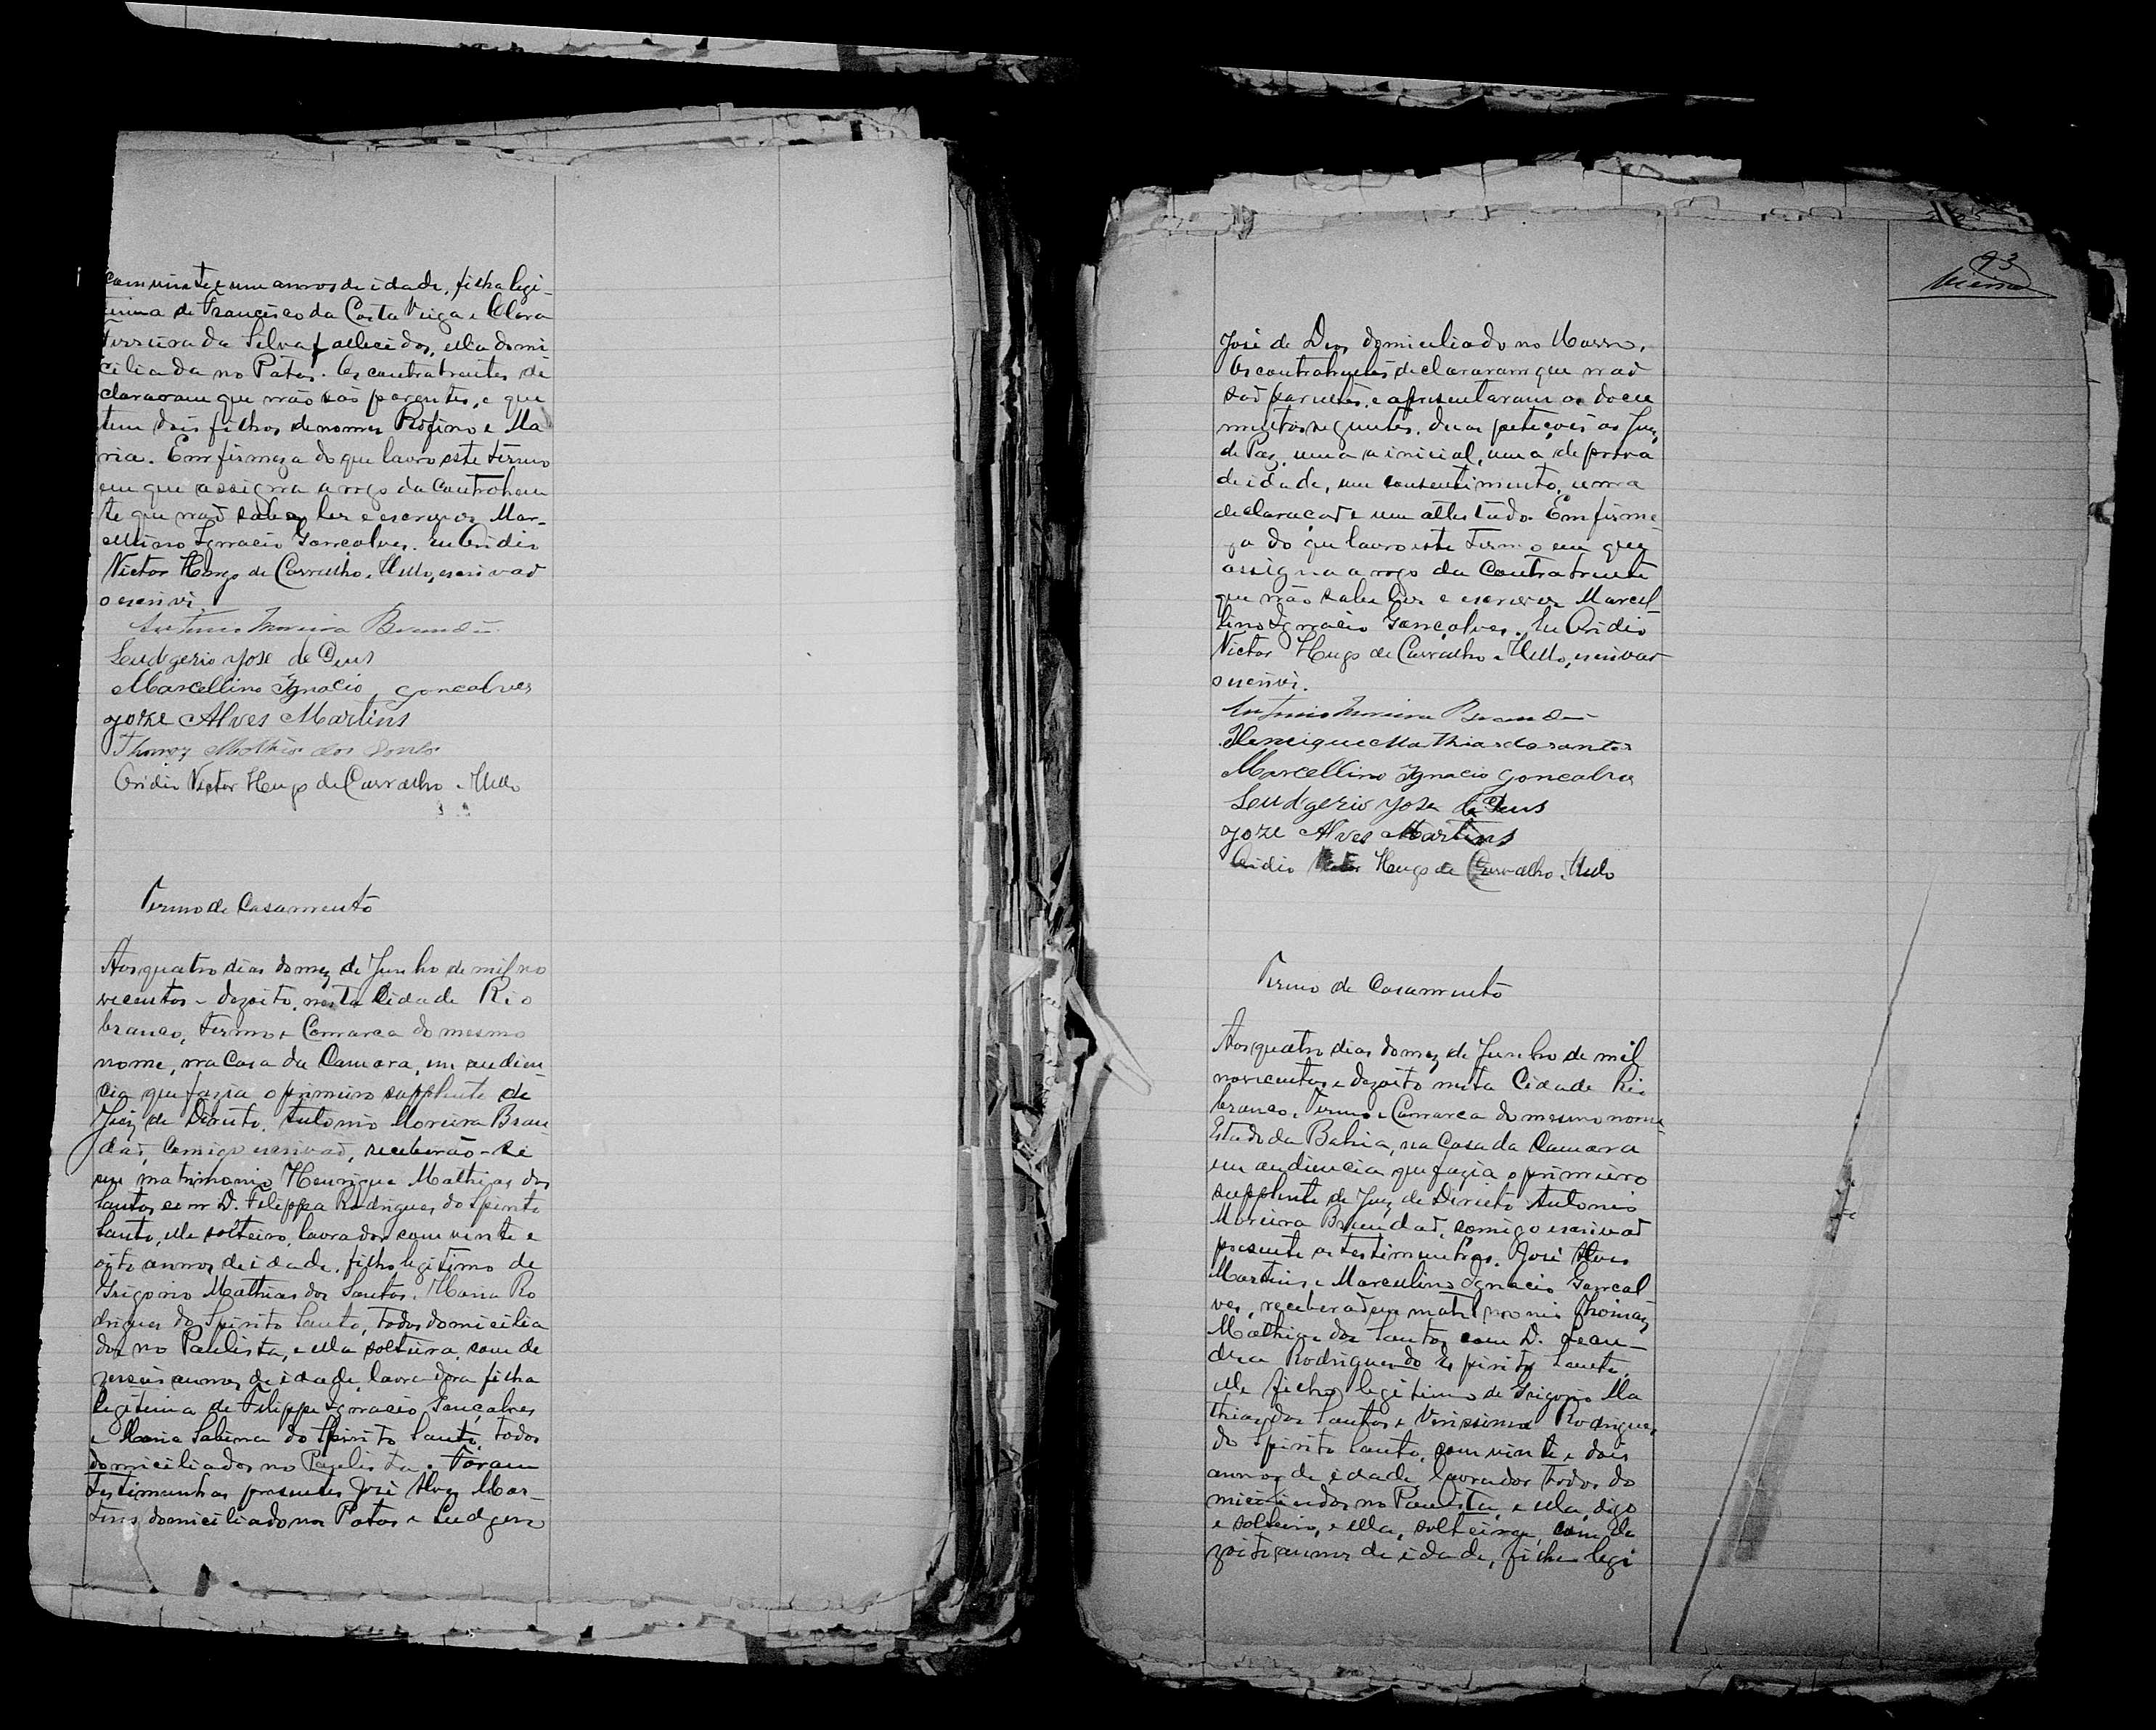 com vinte e um annos de idade, filha legi-
tima de Francisco da Costa Veiga e Clara
Ferreira da Silva fallecidos, ella domi
ciliada no Patos. Os contratrentes de
clararam que não são parentes, e que
tem dois filhos de nomes Rofino e Ma
ria. Em firmeza do que lavro este termo
em que assigna a rogo da Contrahen
te que não sabe ler e escrever Mar-
cellino Ignacio Goncalves. Eu Ovidio
Victor Hugo de Carvalho e Mello, escrivão
o escrivi.
Antonio Moreira Brandão
Leudgerio Jose de Deus
Marcellino Ignacio Goncalves
Joze Alves Martins
Thomaz Mathias dos Santos
Ovidio Victor Hugo de Carvalho e Mello
Termo de Casamento
Aos quatro dias do mez de Junho de mil no
vecentos e dezoito, nesta Cidade Rio
branco, termo e Comarca do mesmo
nome, na Casa da Camara, em audien
cia que fazia o primeiro supplente de
Juiz de Direito, Antonio Moreira Bran
dão, comigo escrivão, receberão-se
em matrimonio Henrique Mathias dos
Santos com D. Filippa Rodrigues do Spirito
Santo, elle solteiro, lavrador com vinte e
oito annos de idade, filho legitimo de
Grigorio Mathias dos Santos e Maria Ro
drigues do Spirito Santo, todos domicilia
dos no Paulista, e ella solteira, com de
zerseis annos de idade, lavradora filha
legitima de Filippe Ignacio Gonçalves
e Maria Sabina do Spirito Santo, todos
domiciliados no Paulista. Foram
testimunhas presentes José Alves Mar-
tins, domiciliado no Patos e Ludgero
93
José de Deos domiciliado no Morro.
Os contrahentes declararam que não
são parentes, e apresentaram os docu
mentos seguintes. duas petições ao Juiz
de Paz, uma a inicial, uma de prova
de idade, um consentimento, uma
declaração e um attestado. Em firme
za do que lavro este termo em que
assigna a rogo da Contratrente
que não sabe ler e escrever Marcel-
lino Ignacio Gonçalves. Eu Ovidio
Victor Hugo de Carvalho e Mello, escrivão
o escrivi.
Antonio Moreira Brandão
Henrique Mathias dos santos
Marcellino Ignacio Goncalves
Leudgerio Jose de Deus
Joze Alves Martins
Ovidio Victor Hugo de Carvalho e Mello
Termo de Casamento
Aos quatro dias do mez de Junho de mil
novecentos e dezoito nesta Cidade Rio
branco, Termo e Comarca do mesmo nome
Estado da Bahia, na Casa da Camara
em audiencia que fazia o primeiro
supplente de Juiz de Direito Antonio
Moreira Brandão, comigo escrivão
presente as testimunhas. José Alves
Martins e Marculino Ignacio Goncal
ves, receberão em matrimonio Thomaz
Mathias dos Santos com D. Lean-
dra Rodrigues do Espirito Santo,
elle filho legitimo de Grigorio Ma
thias dos Santos e Virissima Rodrigues
do Spirito Santo, com vinte e dois
annos de idade lavrador todos do
miciliados no Paulista, e ella, digo
e solteiro, e ella, solteira, com de
zoito annos de idade, filha legi